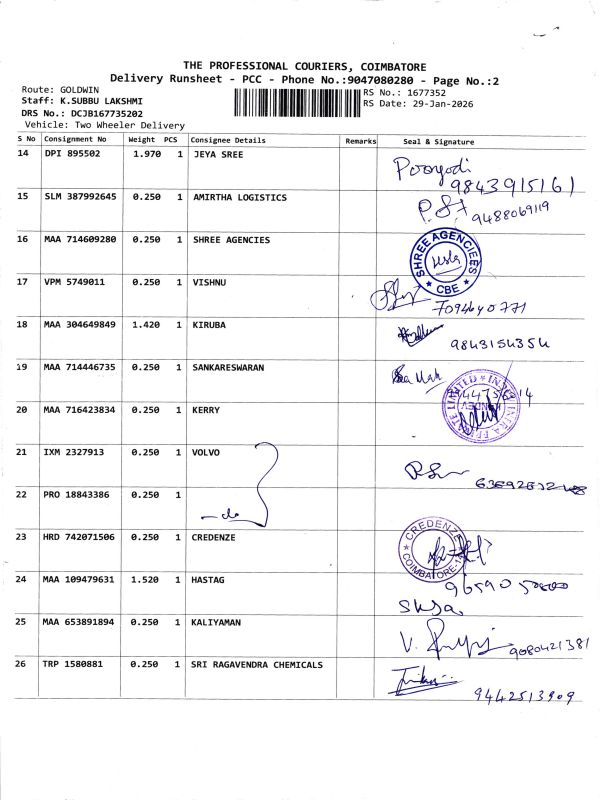 THE PROFESSIONAL COURIERS, COIMBATORE
Delivery Runsheet - PCC - Phone No.:9047080280 - Page No.:2
Route: GOLDWIN
Staff: K.SUBBU LAKSHMI
DRS No.: DCJB167735202
Vehicle: Two Wheeler Delivery
RS No.: 1677352
RS Date: 29-Jan-2026
S No Consignment No Weight PCS Consignee Details Remarks Seal & Signature
14 DPI 895502 1.970 1 JEYA SREE
9843915161
15 SLM 387992645 0.250 1 AMIRTHA LOGISTICS
9488069119
16 MAA 714609280 0.250 1 SHREE AGENCIES
SHREE AGENCIEES
CBE
17 VPM 5749011 0.250 1 VISHNU
7094640771
18 MAA 304649849 1.420 1 KIRUBA
9843154354
19 MAA 714446735 0.250 1 SANKARESWARAN
20 MAA 716423834 0.250 1 KERRY
21 IXM 2327913 0.250 1 VOLVO
22 PRO 18843386 0.250 1
-do-
23 HRD 742071506 0.250 1 CREDENZE
CREDENZE
COIMBATORE
24 MAA 109479631 1.520 1 HASTAG
25 MAA 653891894 0.250 1 KALIYAMAN
9080421381
26 TRP 1580881 0.250 1 SRI RAGAVENDRA CHEMICALS
9442513909